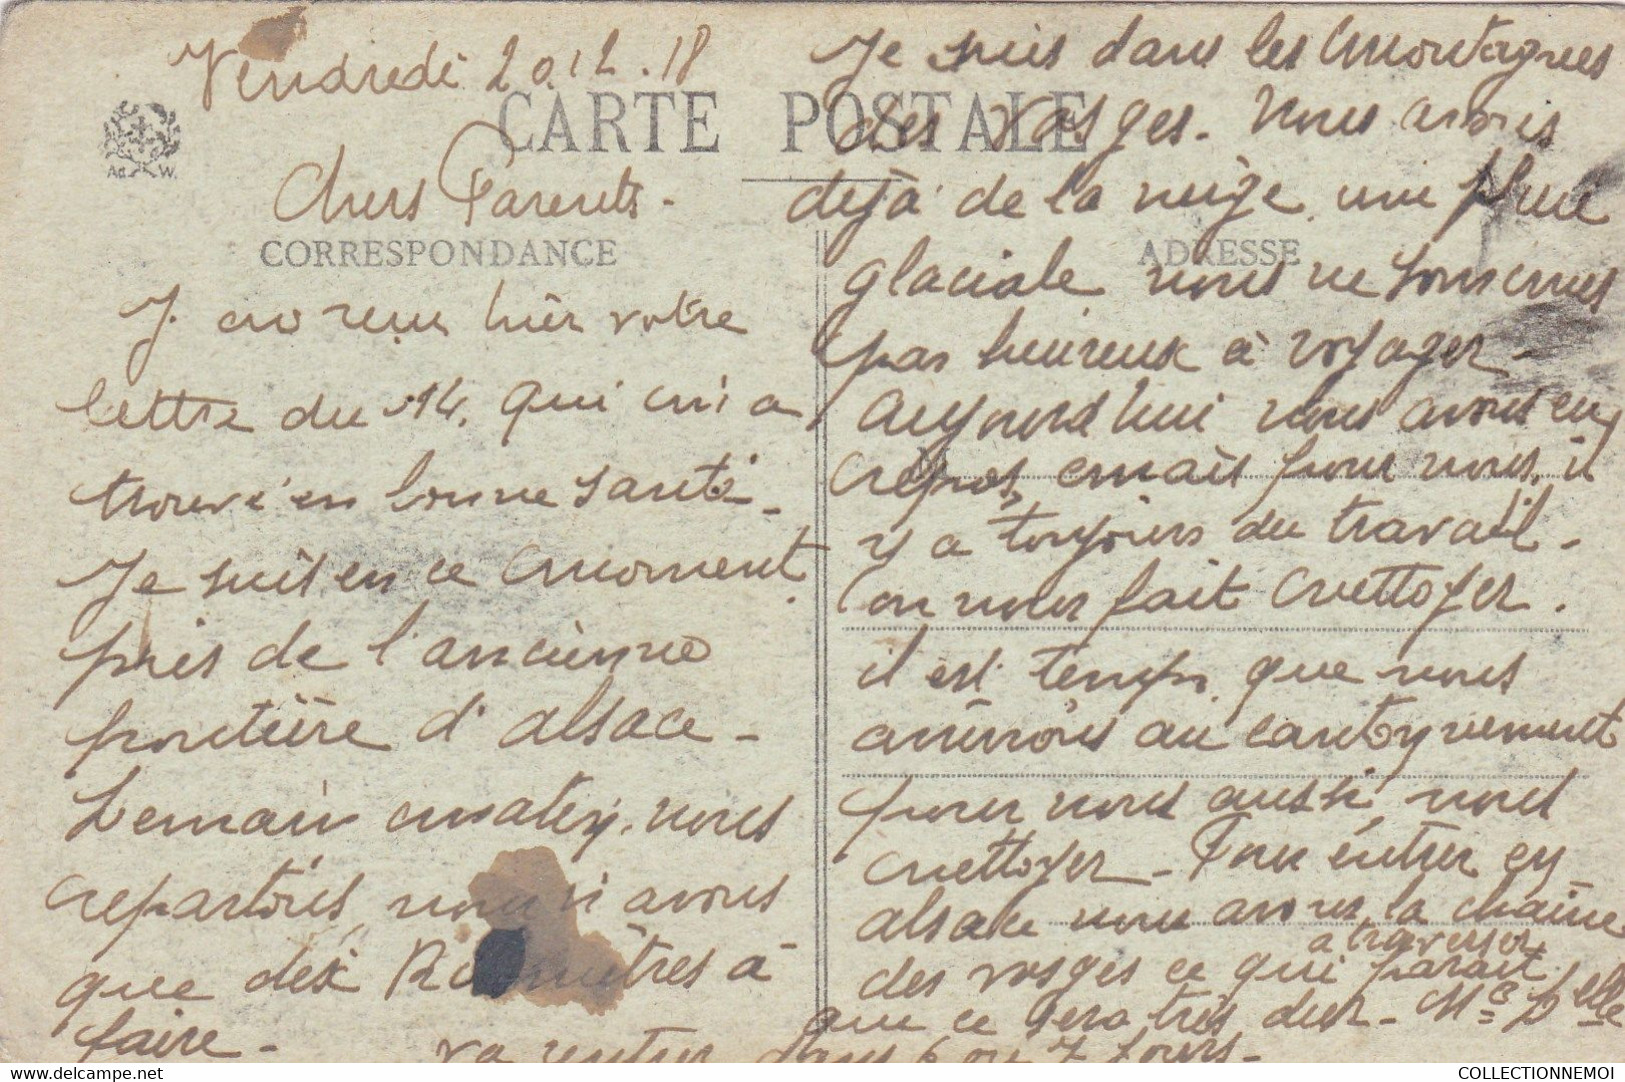 Vendredi 20.12.18
CARTE POSTALE
Ad W.
Chers Parents -
CORRESPONDANCE
ADRESSE
J. ai reçu hier votre
lettre du 14. qui m'a
trouvé en bonne santé -
Je suis en ce moment
près de l'ancienne
frontière d'alsace -
Demain matin, nous
repartons, nous n'avons
que dix Kilomètres à
faire -
Je suis dans les montagnes
des Vosges - Nous avons
dejà de la neige, une pluie
glaciale nous ne sommes
pas heureux à voyager -
Aujourd'hui nous avons eu
repos, mais pour nous, il
y a toujours du travail -
on nous fait nettoyer.
il est temps que nous
arrivons au cantonnement
pour nous aussi, nous
nettoyer - Pour entrer en
alsace nous avons, la chaine
des vosges a traverser ce qui parait
que ce sera très dur - Mr Delle
va rentrer dans 6 ou 7 jours -
COLLECTIONNEMOI
delcampe.net